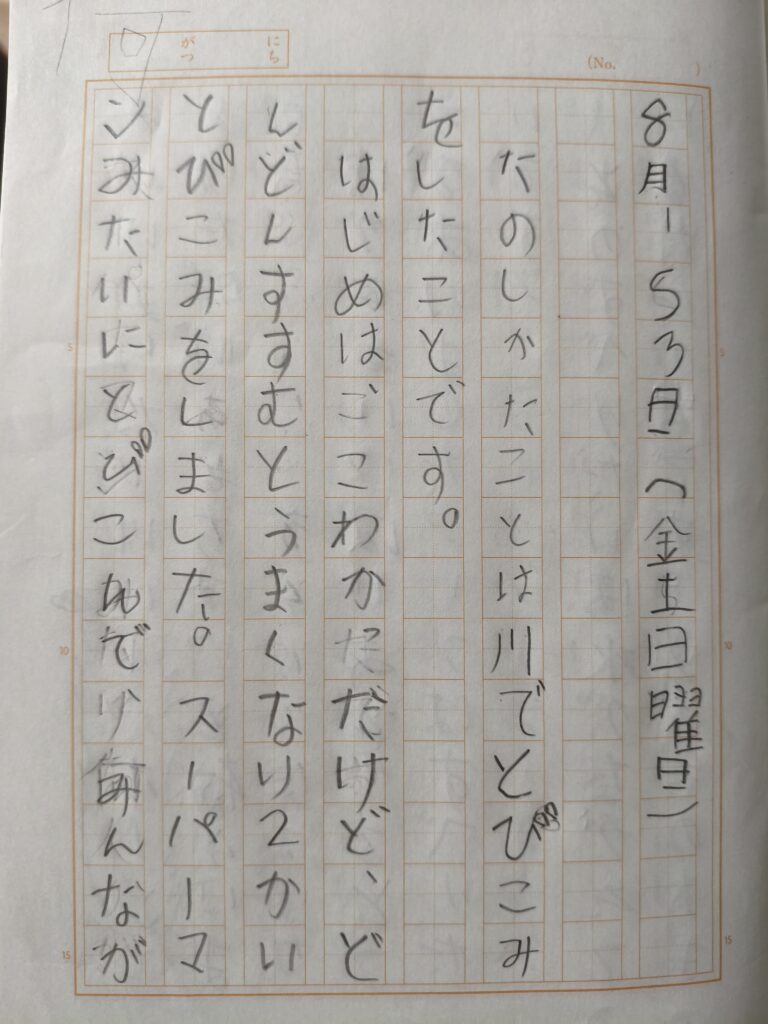 がつ にち
(No. )
8月153日(金土日曜日)
たのしかたことは川でとびこみ
をしたことです。
はじめはごこわかただけど、ど
んどんすすむとうまくなり2かい
とびこみをしました。スーパーマ
ンみたいにとびこ みんなが
5
10
15
5
10
15